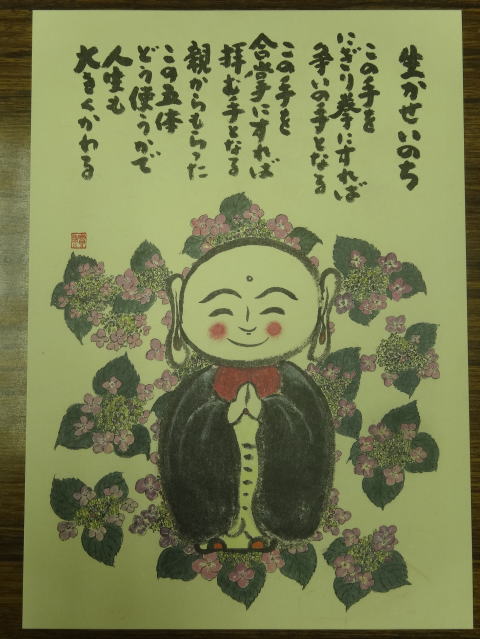 生かせいのち
この手を
にぎり拳にすれば
争いの手となる
この手を
合掌にすれば
拝む手となる
親からもらった
この五体
どう使うかで
人生も
大きくかわる